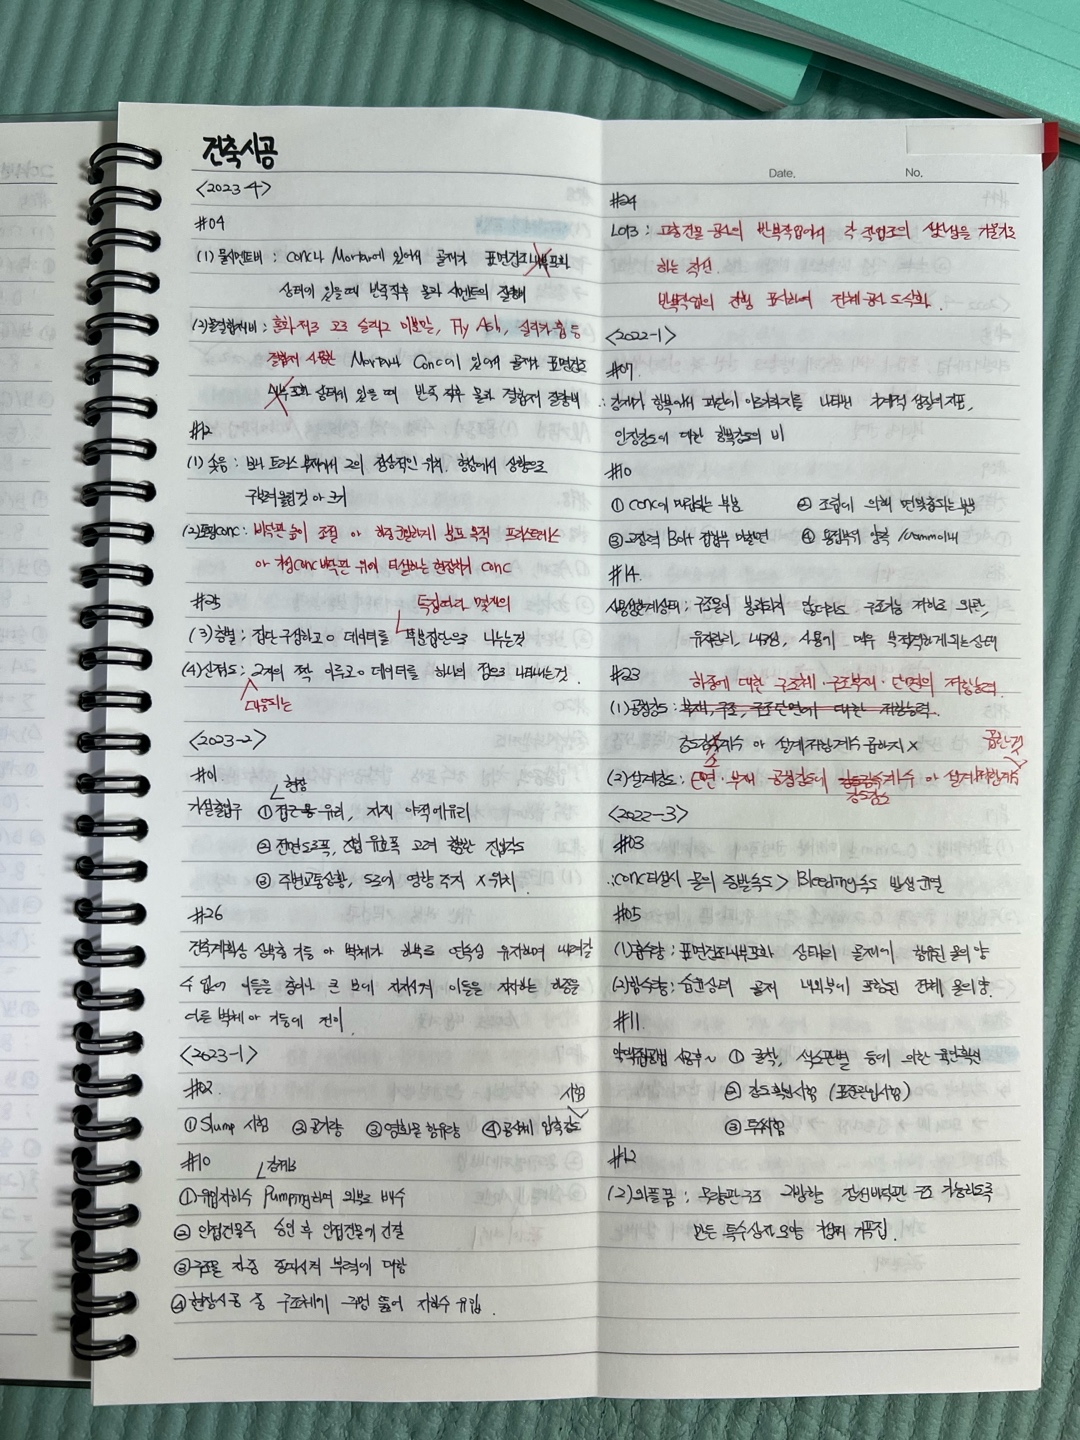 건축시공
<2023-4>
#04
(1) 물시멘트비 : Conc나 Mortar에 있어서 골재가 표면건조내부포화
상태에 있을때 반죽직후 물과 시멘트의 질량비
(2)물결합재비 : 혼화재로 고로 슬래그 미분말, Fly Ash, 실리카 흄 등
결합재 사용한 Mortar나 Conc에 있어서 골재가 표면건조
내부포화 상태에 있을 때 반죽 직후 물과 결합재 질량비
#12
(1) 솟음 : 보나 트러스 부재에서 그의 정상적인 위치, 형상에서 상향으로
구부려 올린것 아 크기
(2)토핑conc : 바닥판 높이 조절 아 하중 균일하게 분포 목적 프리스트레스
아 conc 바닥판 위에 타설하는 현장치기 conc
#25
특징따라 몇개의
(3) 층별 : 집단 구성하고 데이터를 부분집단으로 나누는것
(4)산점도 : 2개의 짝 이루고 데이터를 하나의 점으로 나타내는것.
대응되는
<2023-2>
#01
현장
가설출입구 ①접근 용 유리, 자재 야적에유리
②전면도로폭, 진입 유효폭 고려 진입각도
③ 주변교통상황, 도로에 영향 주지 X 위치.
#26
건축계획상 상부층 기둥 아 벽체가 하부로 연속성 유지하여 내려갈
수 없어 이들을 춤이 큰 보에 지지시켜 이들을 지지하는 하중을
다른 벽체 아 기둥에 전이.
<2023-1>
#02.
시험
①Slump 시험 ②공기량 ③염화물 함유량 ④공시체 압축강도
#10
①유입지하수 Pumping하여 외부로 배수
② 인접건물주 승인 후 인접건물에 긴결
③구조물 자중 증대시켜 부력에 대항
④현장시공 중 구조체에 구멍 뚫어 지하수 유입.
Date. No.
#24
LOB : 고층건물 공사의 반복작업에서 각 작업조의 생산성을 기울기로
하는 직선
반복작업의 진행 표시하여 전체 공사 도식화.
<2022-1>
#07.
∴ 강재가 항복에서 파단에 이르기까지를 나타낸 기계적 성질의 지표,
인장강도에 대한 항복강도의 비
#10
① conc에 매립되는 부분 ② 조립에 의해 면맞춤되는 면
③고장력 Bolt 접합부 마찰면 ④ 용접부위 양측 100mm이내
#14.
사용성한계상태 : 구조물이 붕괴되지 않더라도 구조기능 저하로 외관,
유지관리, 내구성, 사용에 매우 부적격하게 되는 상태
#23
하중에 대한 구조체·구조부재·단면의 저항능력.
(1)공칭강도 : 부재, 구조, 구조단면에 대한 저항능력.
강도감소계수 아 설계저항계수 곱하지 X
곱한것
(2)설계강도 : 단면·부재 공칭강도에 계수 아 설계저항계수
강도감소
<2022-3>
#03
∴conc타설시 물의 증발속도 > Bleeding속도 발생 균열
#05
(1)흡수량 : 표면건조내부포화 상태의 골재에 함유된 물의 양
(2)함수량 : 습윤상태 골재 내외부에 포함된 전체 물의양.
#11.
약액주입공법 시공후~ ① 굴착, 색소판별 등에 의한 육안확인
② 강도확인시험 (표준관입시험)
③ 투수시험
#12
(2)와플폼 : 무량판구조 2방향 장선바닥판 구조 가능하도록
만든 특수상자 모양 기성제 거푸집.